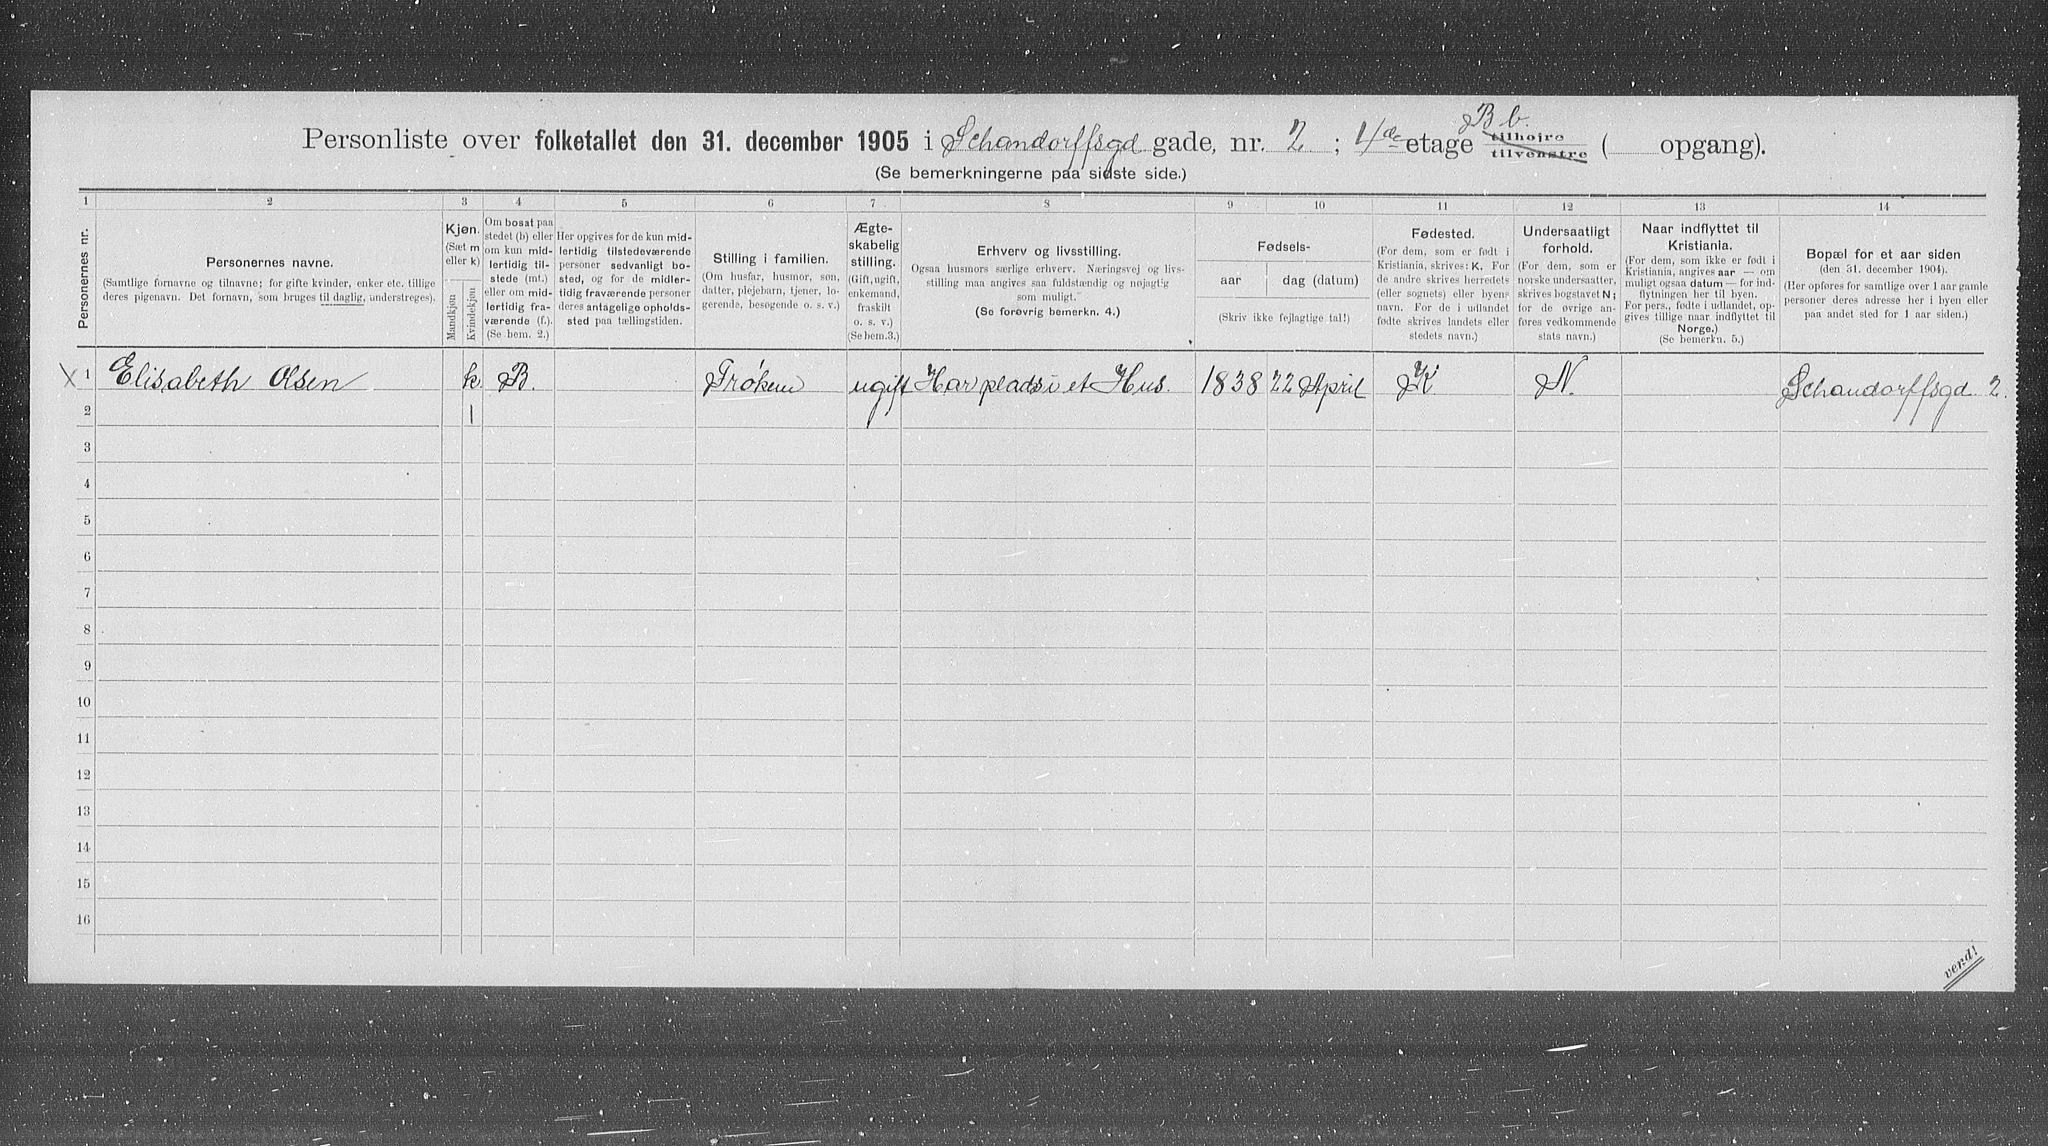 B b.
Personliste over folketallet den 31. december 1905 i Schandorffsgd gade, nr. 2 ; 4de etage tilhøjre tilvenstre ( opgang).
(Se bemerkningerne paa sidste side.)
1 2 3 4 5 6 7 8 9 10 11 12 13 14
Personernes nr.
Personernes navne.
(Samtlige fornavne og tilnavne; for gifte kvinder, enker etc. tillige
deres pigenavn. Det fornavn, som bruges til daglig, understreges).
Kjøn.
(Sæt m
eller k)
Mandkjøn
Kvindekjøn
Om bosat paa
stedet (b) eller
om kun mid-
lertidig til-
stede (mt.)
eller om mid-
lertidig fra-
værende (f.).
(Se bem. 2.)
Her opgives for de kun mid-
lertidig tilstedeværende
personer sedvanlig bo-
sted, og for de midler-
tidig fraværende personer
deres antagelige opholds-
sted paa tællingstiden.
Stilling i familien.
(Om husfar, husmor, søn,
datter, plejebarn, tjener, lo-
gerende, besøgende o. s. v.)
Ægte-
skabelig
stilling.
(Gift, ugift,
enkemand,
fraskilt
o. s. v.)
(Se bem.3.)
Erhverv og livsstilling.
Ogsaa husmors særlige erhverv. Næringsvej og livs-
stilling maa angives saa fuldstændig og nøjagtig
som muligt.
(Se forøvrig bemerkn. 4.)
Fødsels-
aar dag (datum)
(Skriv ikke fejlagtige tal!)
Fødested.
(For dem, som er født i
Kristiania, skrives: K. For
de andre skrives herredets
(eller sognets) eller byens
navn. For de i udlandet
fødte skrives landets eller
stedets navn.)
Undersaatligt
forhold.
(For dem, som er
norske undersaatter,
skrives bogstavet N;
for de øvrige an-
føres vedkommende
stats navn.)
Naar indflyttet til
Kristiania.
(For dem, som ikke er født i
Kristiania, angives aar — om
muligt ogsaa datum — for ind-
flytningen her til byen.
For pers., fødte i udlandet, op-
gives tillige naar indflyttet til
Norge.)
(Se bemerkn. 5.)
Bopæl for et aar siden
(den 31. december 1904).
(Her opføres for samtlige over 1 aar gamle
personer deres adresse her i byen eller
paa andet sted for 1 aar siden.)
X 1 Elisabeth Olsen k B. Frøken ugift Har plads i et Hus. 1838 22 April K N. Schandorffsgd. 2.
2 1
3
4
5
6
7
8
9
10
11
12
13
14
15
16
vend!